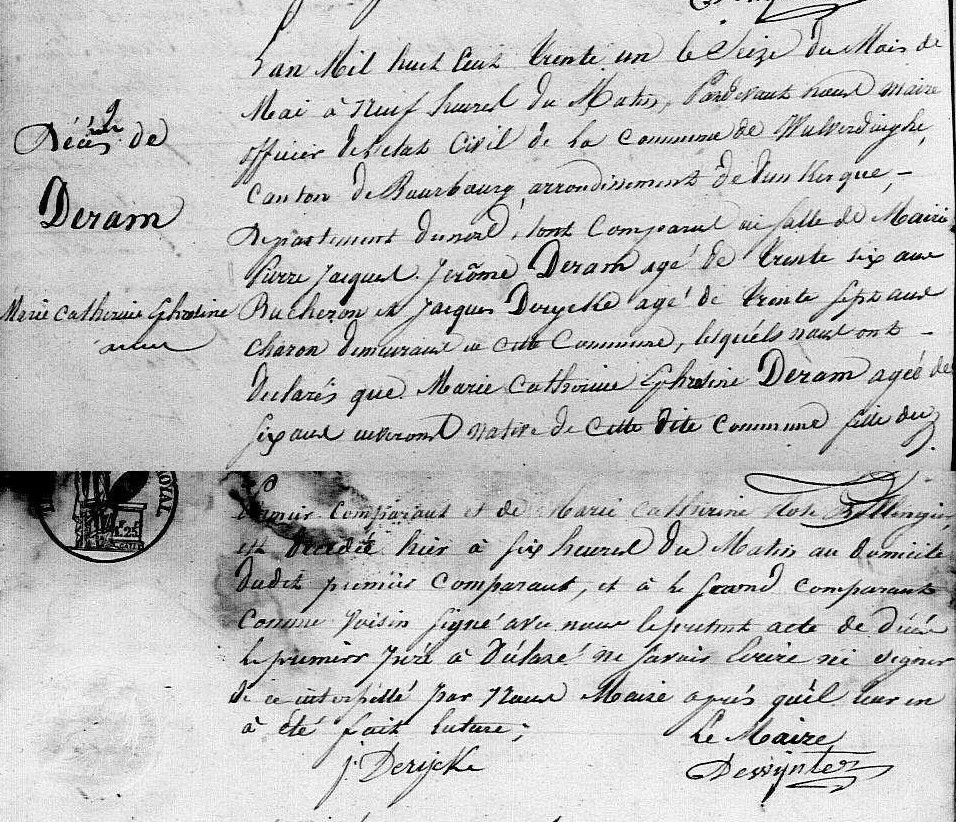 Décès de
Deram
Marie Catherine Ephrosine
L'an Mil huit Cent trente un le Seize du Mois de
Mai à Neuf heures du Matin, Pardevant nous maire
officier de l'etat Civil de la Commune de Wulverdinghe,
Canton de Bourbourg, arrondissement de Dunkerque, -
Departement du nord, sont Comparus en salle de Mairie
Pierre Jacques Jerôme Deram agé de trente six ans
Bucheron et Jacques Derycke agé de trente sept ans
charon demeurans en cette Commune, lesquels nous ont -
declarés que Marie Catherine Ephrosine Deram ageé de
six ans environs native de cette dite Commune fille du
Premier Comparant et de Marie Catherine Rose
est decedée hier à six heures du Matin au domicile
dudit premier Comparant, et à le second comparant
Comme Voisin signé avec nous le present acte de décès
le premier à déclaré ne savoir Ecrire ni signer
de ce interpellé par Nous Maire après qu'il leur en
à été fait lecture;
Le Maire
j. Derijcke
Dewynter
ROYAL
F. 25